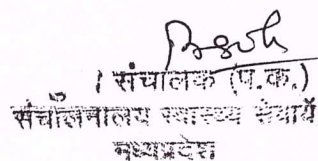 संचालक (प.क.)
संचालनालय स्वास्थ्य सेवायें
मध्यप्रदेश